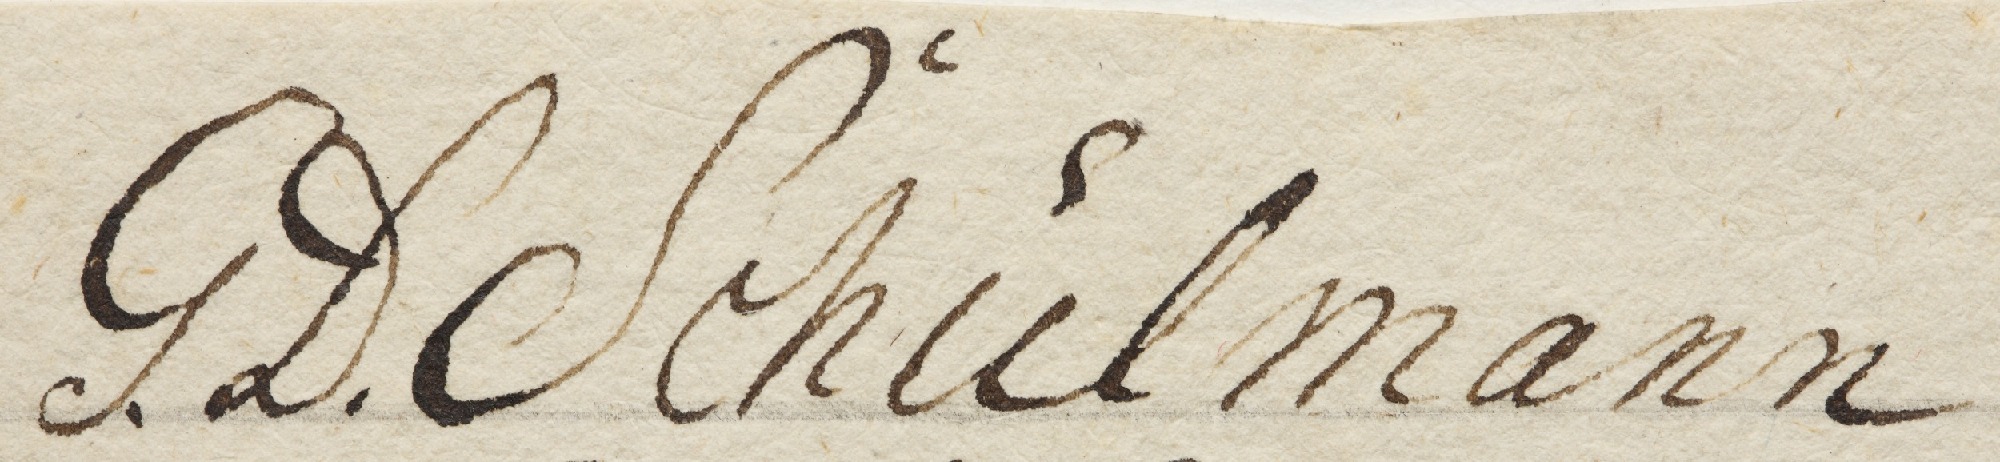 G. D. Schulmann